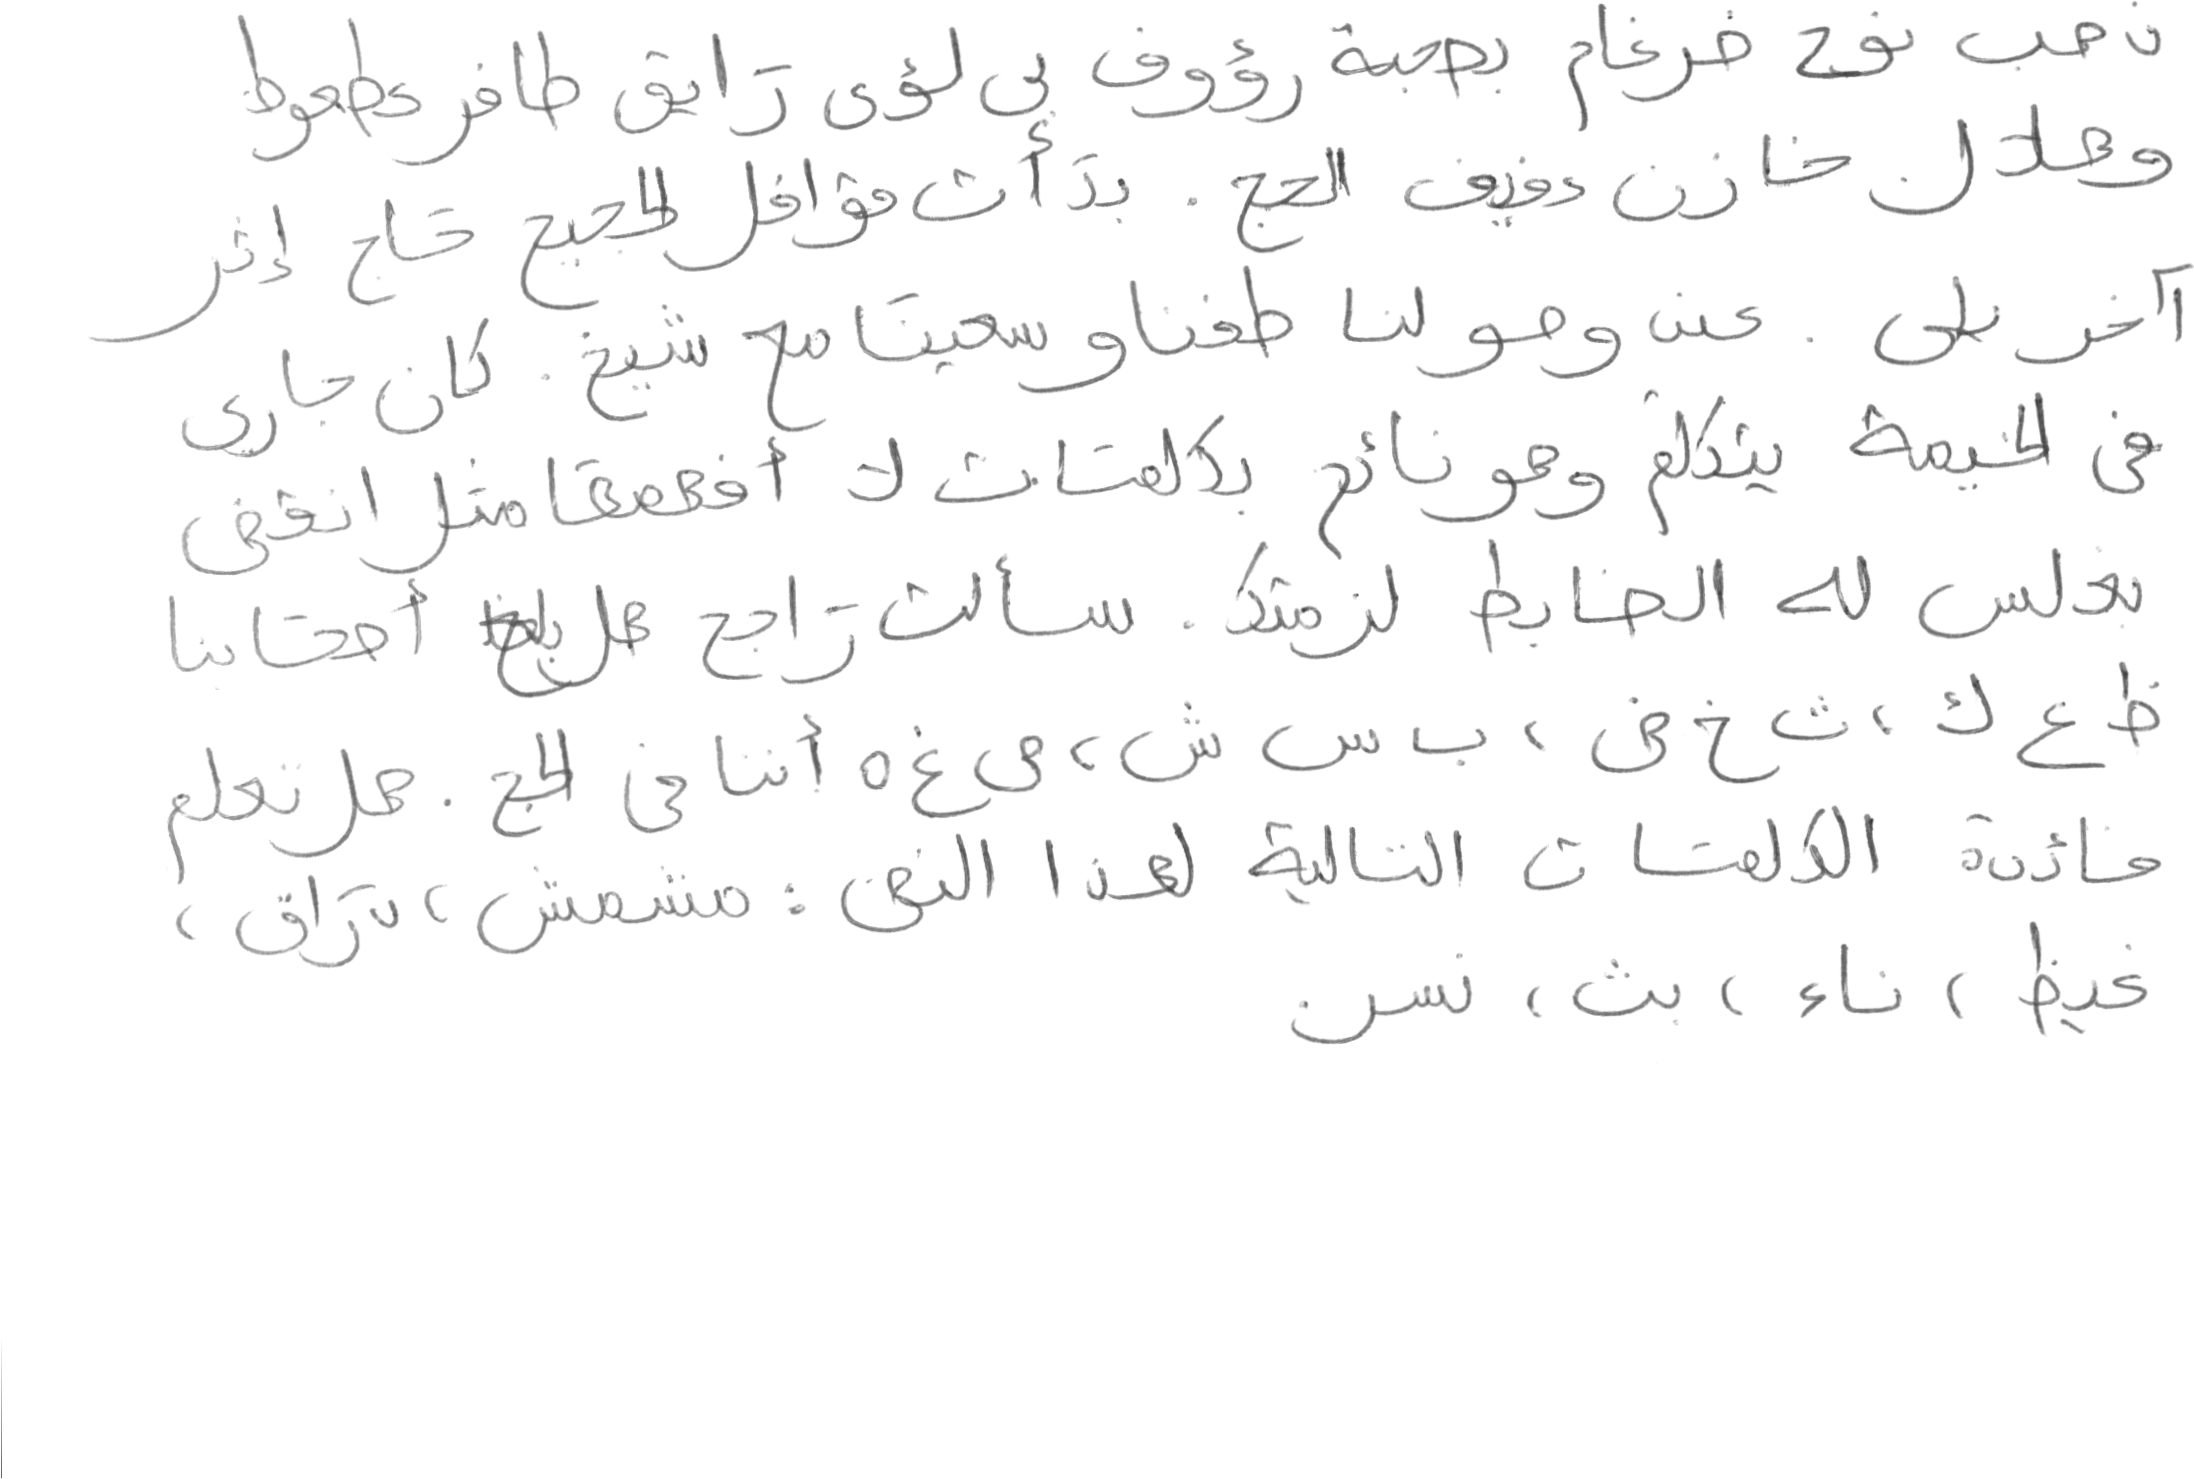 ذهب نوح ضرغام بصحبة رؤوف بن لؤى رايق ظافر عطعوط
وهلال خازن عفيف الحج . بدأت قوافل الحجيج حاج إثر
آخر بلى . عند وصولنا طفنا وسعينا مع شيخ . كان جارى
فى الخيمة يتكلم وهو نائم بكلمات لا أفهمها مثل انقض
بغلس لله الضابط لزمتك . سألت راجح هل بلغ أصحابنا
ظ ع ك ، ث خ ض ، ب س ش ، ص غ ه أننا فى الحج . هل تعلم
فائدة الكلمات التالية لهذا النص : مشمش ، براق ،
غيظ ، ناء ، بث ، نسرن